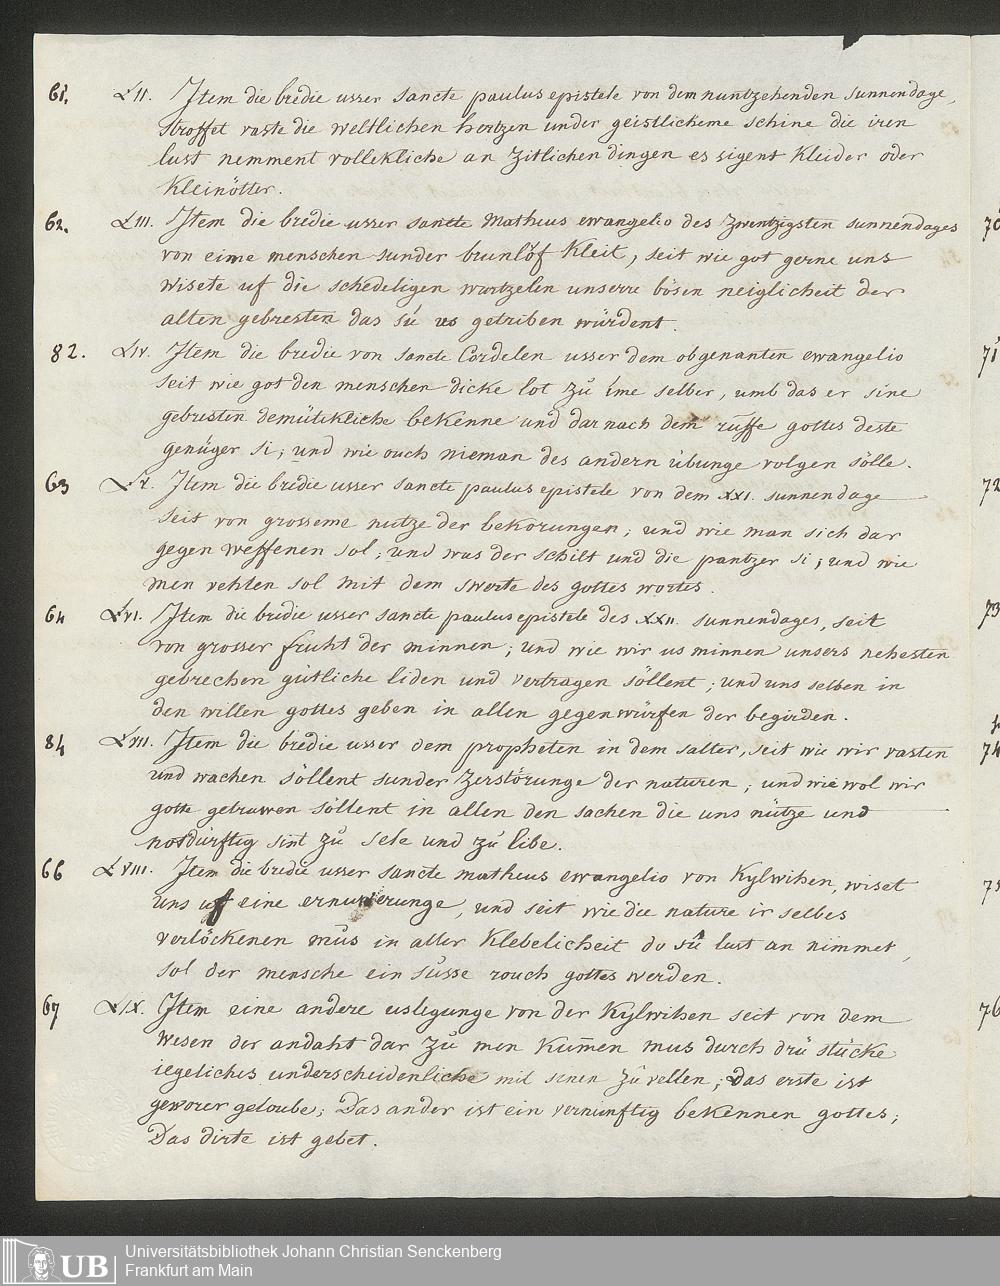 61. LII. Item die bredie usser sancte paulus epistele von dem nuntzehenden sunnendage,
stroffet vaste die weltlichen hertzen under geistlicheme schine die iren
lust nemment vollekliche an zitlichen dingen es sigent Kleider oder
Kleinötter.
62. LIII. Item die bredie usser sancte Matheus ewangelio des zwentzigsten sunnendages
von eime menschen sunder brunlöf Kleit, seit wie got gerne uns
wisete uf die schedeligen wurtzelen unserre bösen neiglicheit der
alten gebresten das sú us getriben würdent.
82. LIV. Item die bredie von sancte Cordelen usser dem obgenanten ewangelio
seit wie got den menschen dicke lot zů íme selber, umb das er sine
gebresten demütekliche bekenne und dar nach dem růffe gottes deste
genüger si; und wie ouch nieman des andern übunge volgen sölle.
63 LV. Item die bredie usser sancte paulus epistele von dem XXI. sunnendage
seit von grosseme nutze der bekorungen; und wie man sich dar
gegen weffenen sol; und was der schilt und die pantzer si; und wie
men vehten sol mit dem swerte des gottes wortes.
64 LVI. Item die bredie usser sancte paulus epistele des XXII. sunnendages, seit
von grosser fruht der minnen; und wie wir us minnen unsers nehesten
gebrechen gütliche liden und vertragen söllent; und uns selben in
den willen gottes geben in allen gegenwürfen der begirden.
84 LVII. Item die bredie usser dem propheten in dem salter, seit wie wir vasten
und wachen söllent sunder zerstörunge der naturen; und wie wol wir
gotte getruwen söllent in allen den sachen die uns nütze und
notdürftig sint zů sele und zů libe.
66 LVIII. Item die bredie usser sancte matheus ewangelio von Kylwihen, wiset
uns uf eine ernuwerunge, und seit wie die nature ir selbes
verlöckenen můs in aller Klebelicheit do sú lust an nimmet,
sol der mensche ein süsse rouch gottes werden.
67 LIX. Item eine andere uslegunge von der Kylwihen seit von dem
wesen der andaht dar zů men Kum̄en mus durch drü stücke
iegeliches underscheidenliche mit sinen zůvellen; Das erste ist
geworer geloube; Das ander ist ein vernunftig bekennen gottes;
Das dirte ist gebet.
71
72
73
74
76
UB Universitätsbibliothek Johann Christian Senckenberg
Frankfurt am Main